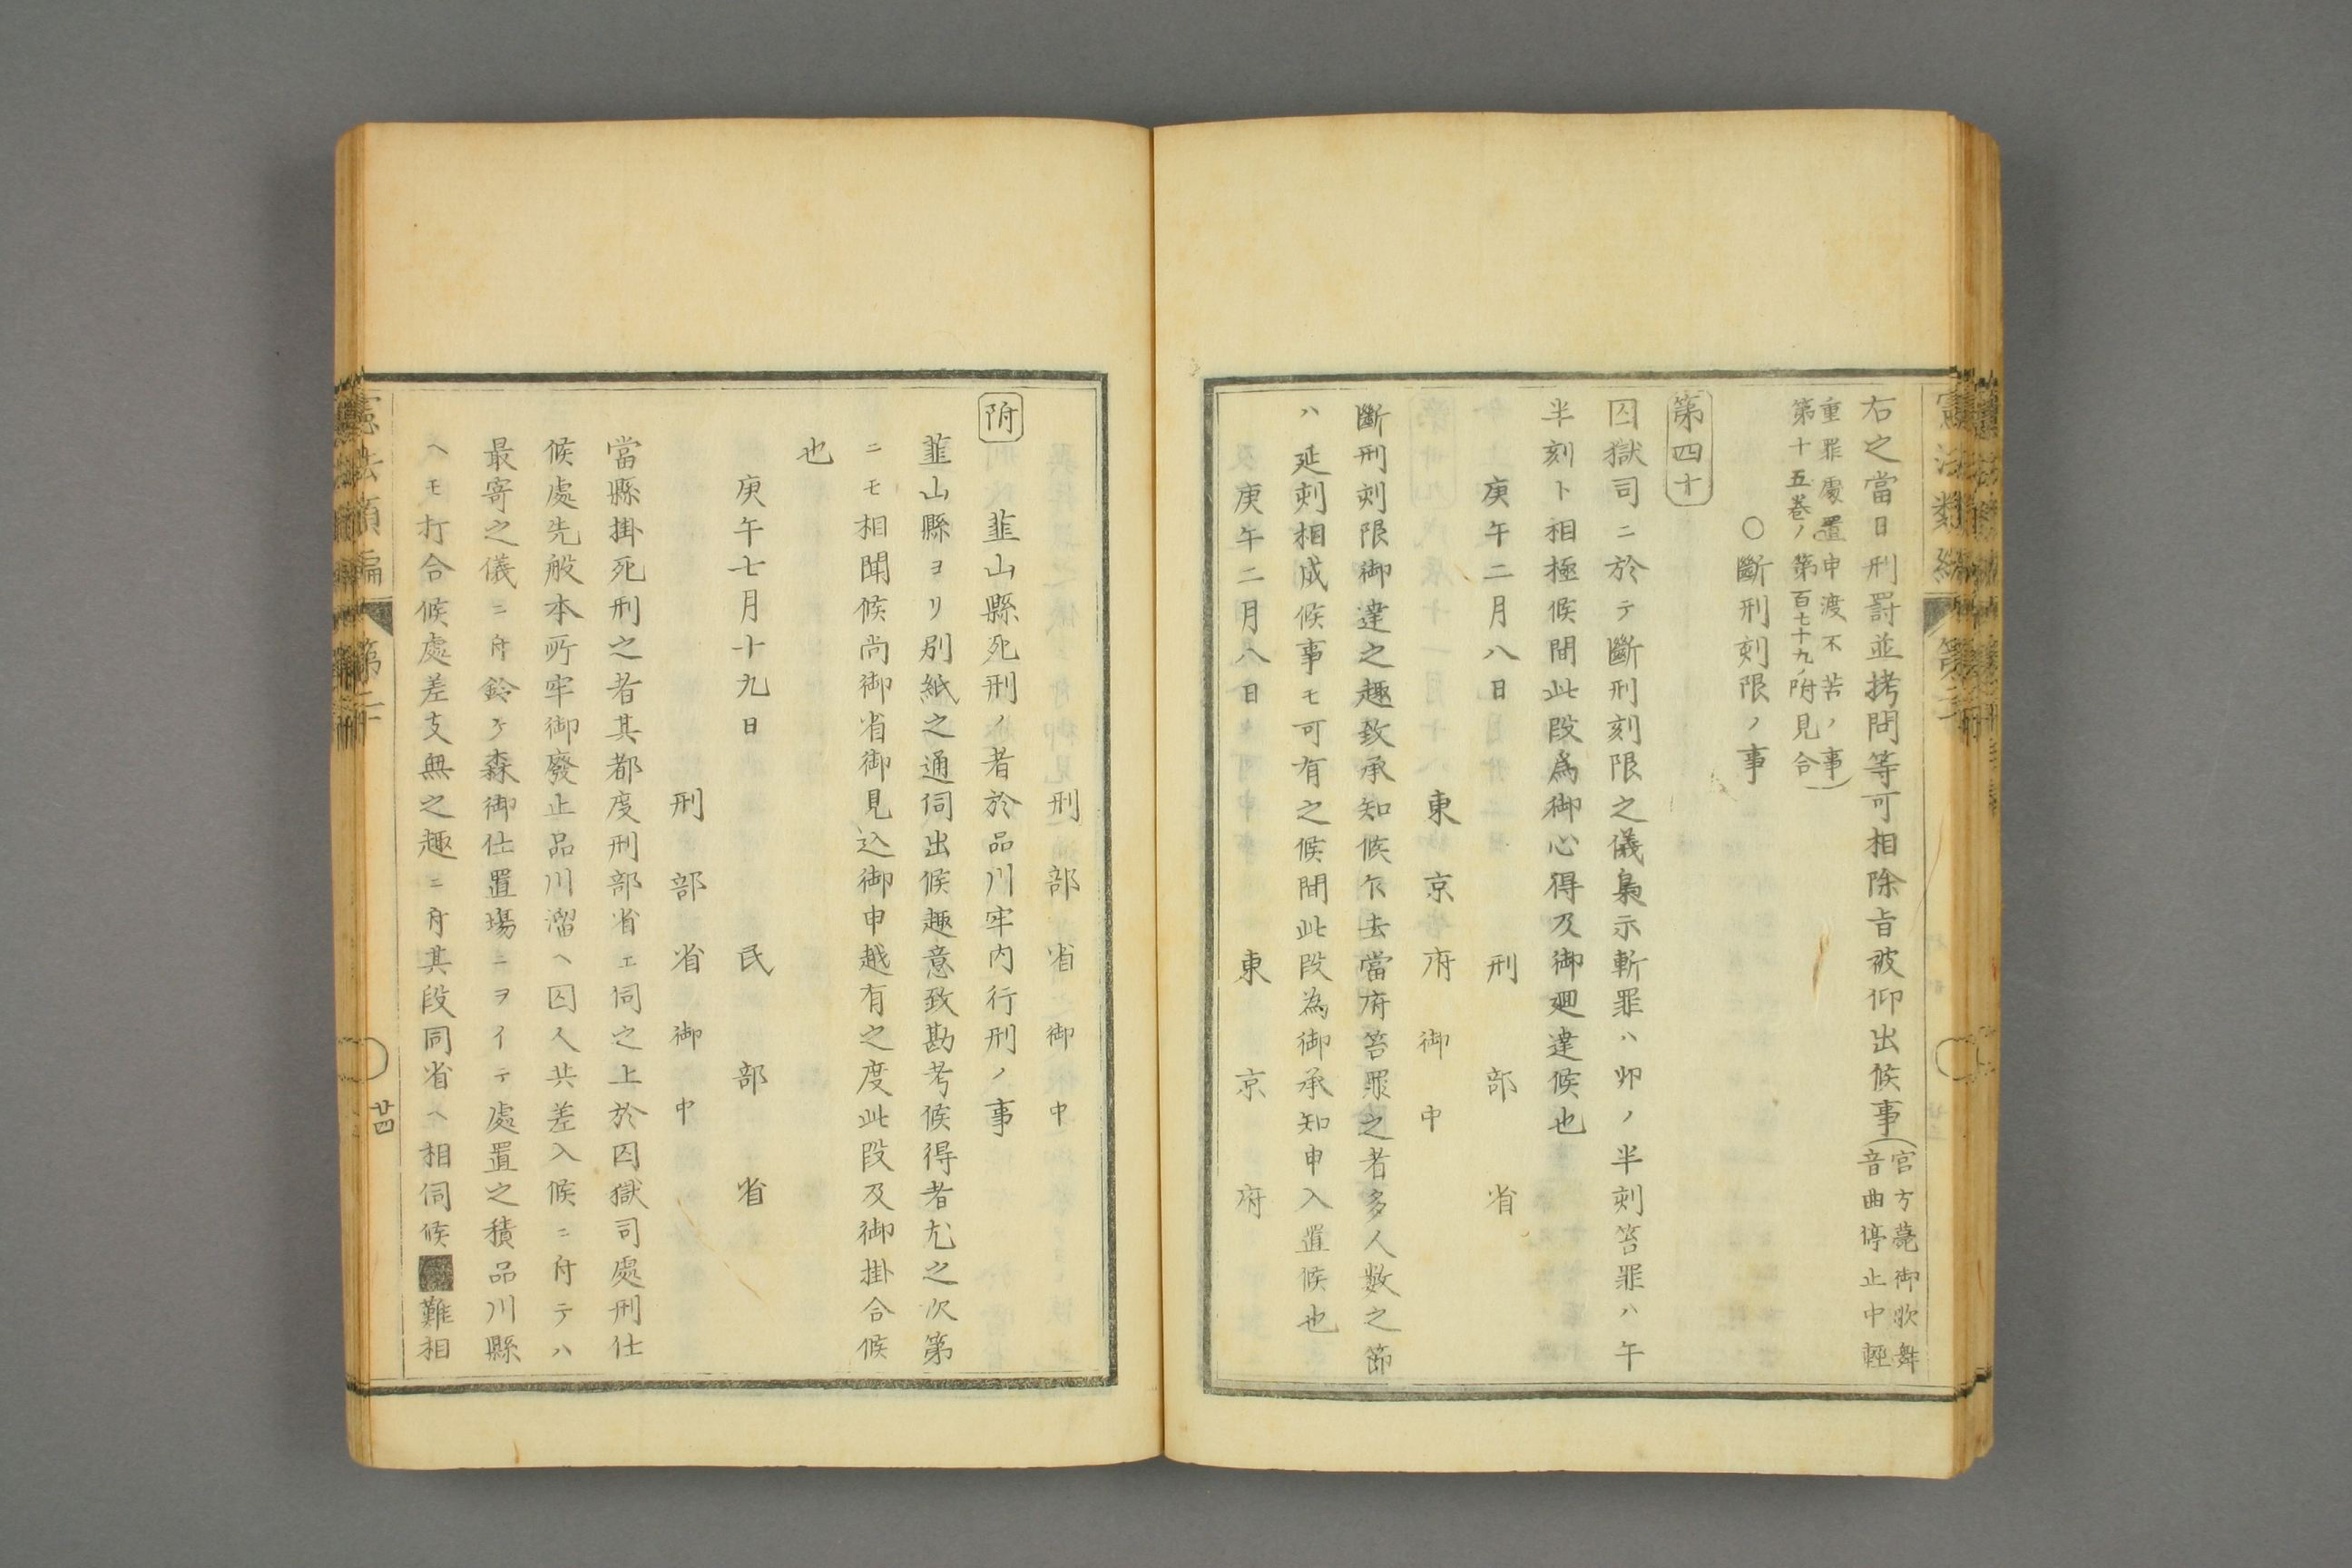 右之當日刑罸並拷問等可相除旨被仰出候事(宮方薨御歌舞
音曲停止中輕
重罪處置申渡不苦ノ事
第十五巻ノ第百七十九ノ附見合)
○斷刑刻限ノ事
第四十
囚獄司ニ於テ斷刑刻限之儀梟示斬罪ハ卯ノ半刻笞罪ハ午
半刻ト相極候間此段爲御心得及御廻達候也
庚午二月八日 刑部省
東京府御中
斷刑刻限御達之趣致承知候乍去當府笞罪之者多人數之節
ハ延刻相成候事モ可有之候間此段為御承知申入置候也
庚午二月八日 東京府
刑部省御中
附 韮山縣死刑ノ者於品川牢内行刑ノ事
韮山縣ヨリ別紙之通伺出候趣意致勘考候得者尤之次第
ニモ相聞候尚御省御見込御申越有之度此段及御掛合候
也
庚午七月十九日 民部省
刑部省御中
當縣掛死刑之者其都度刑部省エ伺之上於囚獄司處刑仕
候處先般本所牢御廢止品川溜ヘ囚人共差入候ニ付テハ
最寄之儀ニ付鈴ケ森御仕置場ニヲイテ處置之積品川縣
ヘモ打合候處差支無之趣ニ付其段同省ヘ相伺候難相
憲法類編 第二十
廿四